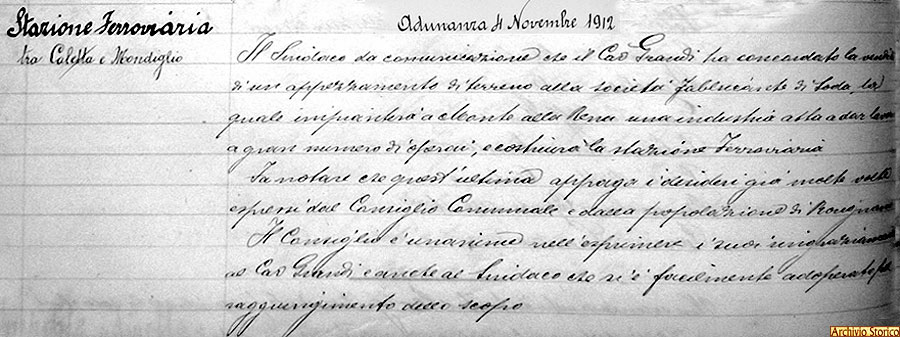 Stazione Ferroviaria
tra Coletta e Mondiglio
Adunanza 4 Novembre 1912
Il Sindaco da comunicazione che il Cav Grandi ha concordato la vendita
di un appezzamento di terreno alla società Fabbricante di Soda, la
quale impianterà a Monte alla Rena una industria atta a dar lavoro
a gran numero di operai, e costruirà la stazione Ferroviaria
Fa notare che quest'ultima appaga i desideri già molte volte
espressi dal Consiglio Comunale e dalla popolazione di Rosignano
Il Consiglio è unanime nell'esprimere i suoi ringraziamenti
al Cav Grandi e anche al Sindaco che si è facilmente adoperato pel
raggiungimento dello scopo
Archivio Storico